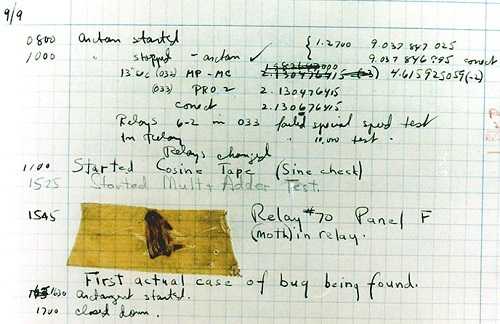 9/9
0800 Antan started { 1.2700 9.037 847 025
1000 " stopped - antan ✓ 9.037 846 995 conect
13" uc (032) MP - MC 2.130476415 4.615925059(-2)
(033) PRO 2 2.130476415
conect 2.130676415
Relays 6-2 in 033 failed special speed test
In Relay " 10,000 test .
Relays changed
1100 Started Cosine Tape (Sine check)
1525 Started Mult + Adder Test.
1545 Relay #70 Panel F
(moth) in relay.
First actual case of bug being found.
1630 antangent started.
1700 closed down.